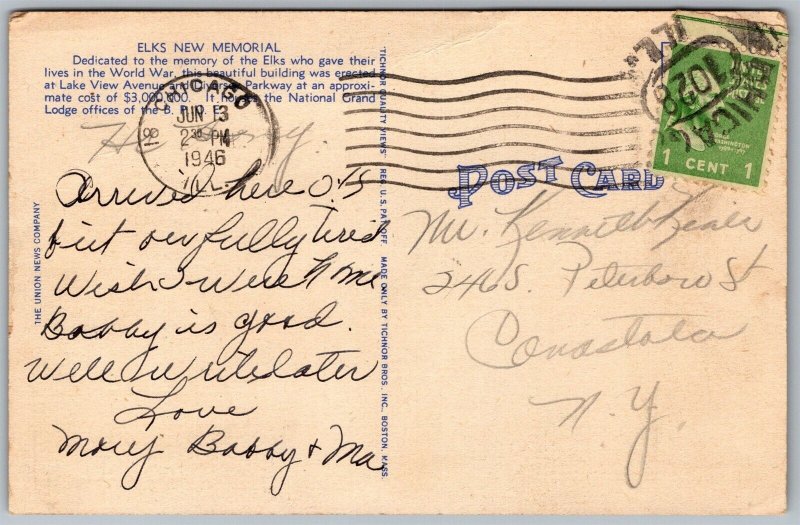 ELKS NEW MEMORIAL
Dedicated to the memory of the Elks who gave their
lives in the World War, this beautiful building was erected
at Lake View Avenue and Parkway at an approxi-
mate cost of $3,000,000. It the National Grand
Lodge offices of the B. P. O. E.
CHICAGO
JUN 13
2 30 PM
1946
ILL.
Arrived here O.K
but awfully tired
Wish I were home
Bobby is good.
Well write later
Love
Mary Bobby & Ma
THE UNION NEWS COMPANY
"TICHNOR QUALITY VIEWS" REG. U.S. PAT. OFF. MADE ONLY BY TICHNOR BROS., INC., BOSTON, MASS.
POST CARD
1 CENT 1
CHICAGO
ILL.
Mr. Kenneth
246 S. Peterboro St
Canastota
N.Y.